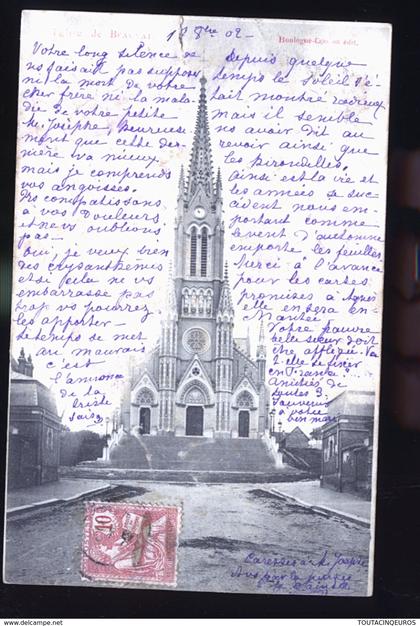 Eglise de Beauval
1 8bre 02 -
Boulogne-Cayeux édit.
Votre long silence ne
ns faisait pas supposer
ni la mort de votre
cher frère ni la mala
die de votre petite
M. Josèphe, heureuse
ment que cette der-
nière va mieux
mais je comprends
vos angoisses.
Ns compatissons
à vos douleurs
et ns ns oublions
pas -
Oui, je veux bien
des crysanthèmes
et si cela ne vs
embarrasse pas
trop vs pourrez
les apporter -
Le temps se met
au mauvais
c'est
l'annonce
de la
triste
saison
depuis quelque
temps le soleil s'é-
tait montré radieux
mais il semble
ns avoir dit au
revoir ainsi que
les hirondelles.
Ainsi est la vie et
les années se suc
cèdent nous em-
portant comme
le vent d'automne
emporte les feuilles
Merci à l'avance
pour les cartes
promises à Agnès
elle en sera en-
chantée
Votre pauvre
belle sœur doit
être affligée. Va
t elle se fixer
en France
Amitiés de
toutes 3.
Souvenir
à votre
bon mari
10
Caresses à M. Josèphe
TOUTACINQEUROS